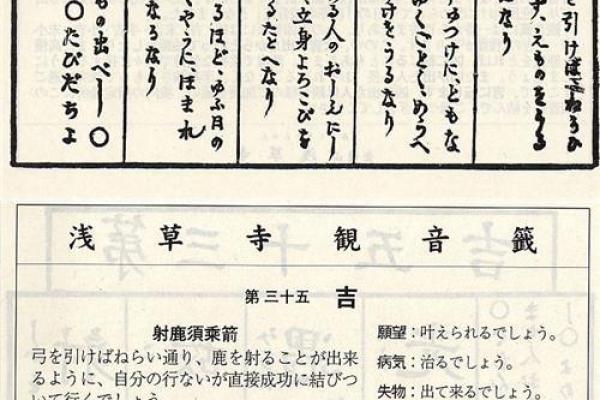 を引けばねらひ
ず、えものをうる
なり
ゆくごとく、めうへ
けをうるなり
る人の
く立身よろこびを
るたとへなり
るほど、ゆふ月の
くやうに、ほまれ
なるなり
もの出べし〇
〇たびだちよ
浅草寺観音籤
第三十五 吉
射鹿須乗箭
弓を引けばねらい通り、鹿を射ることが出来
るように、自分の行ないが直接成功に結びつ
いて行くでしょう。
願望：叶えられるでしょう。
病気：治るでしょう。
失物：出て来るでしょう。